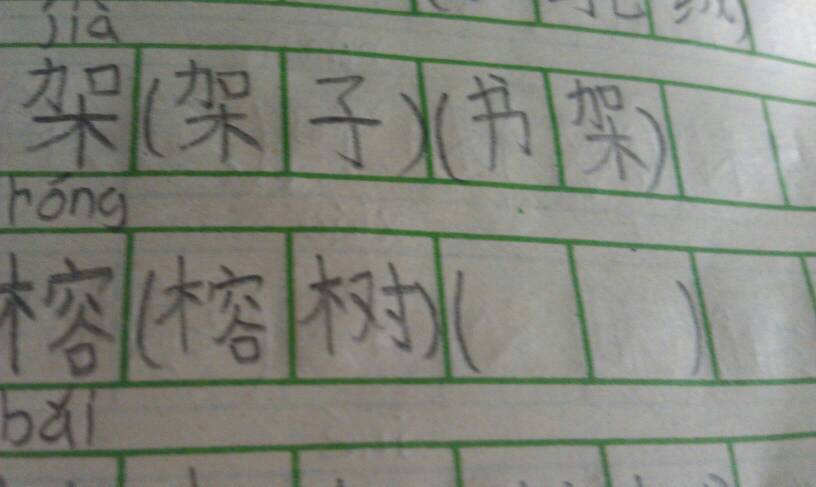 jià
架(架子)(书架)
róng
榕(榕树)( )
bǎi